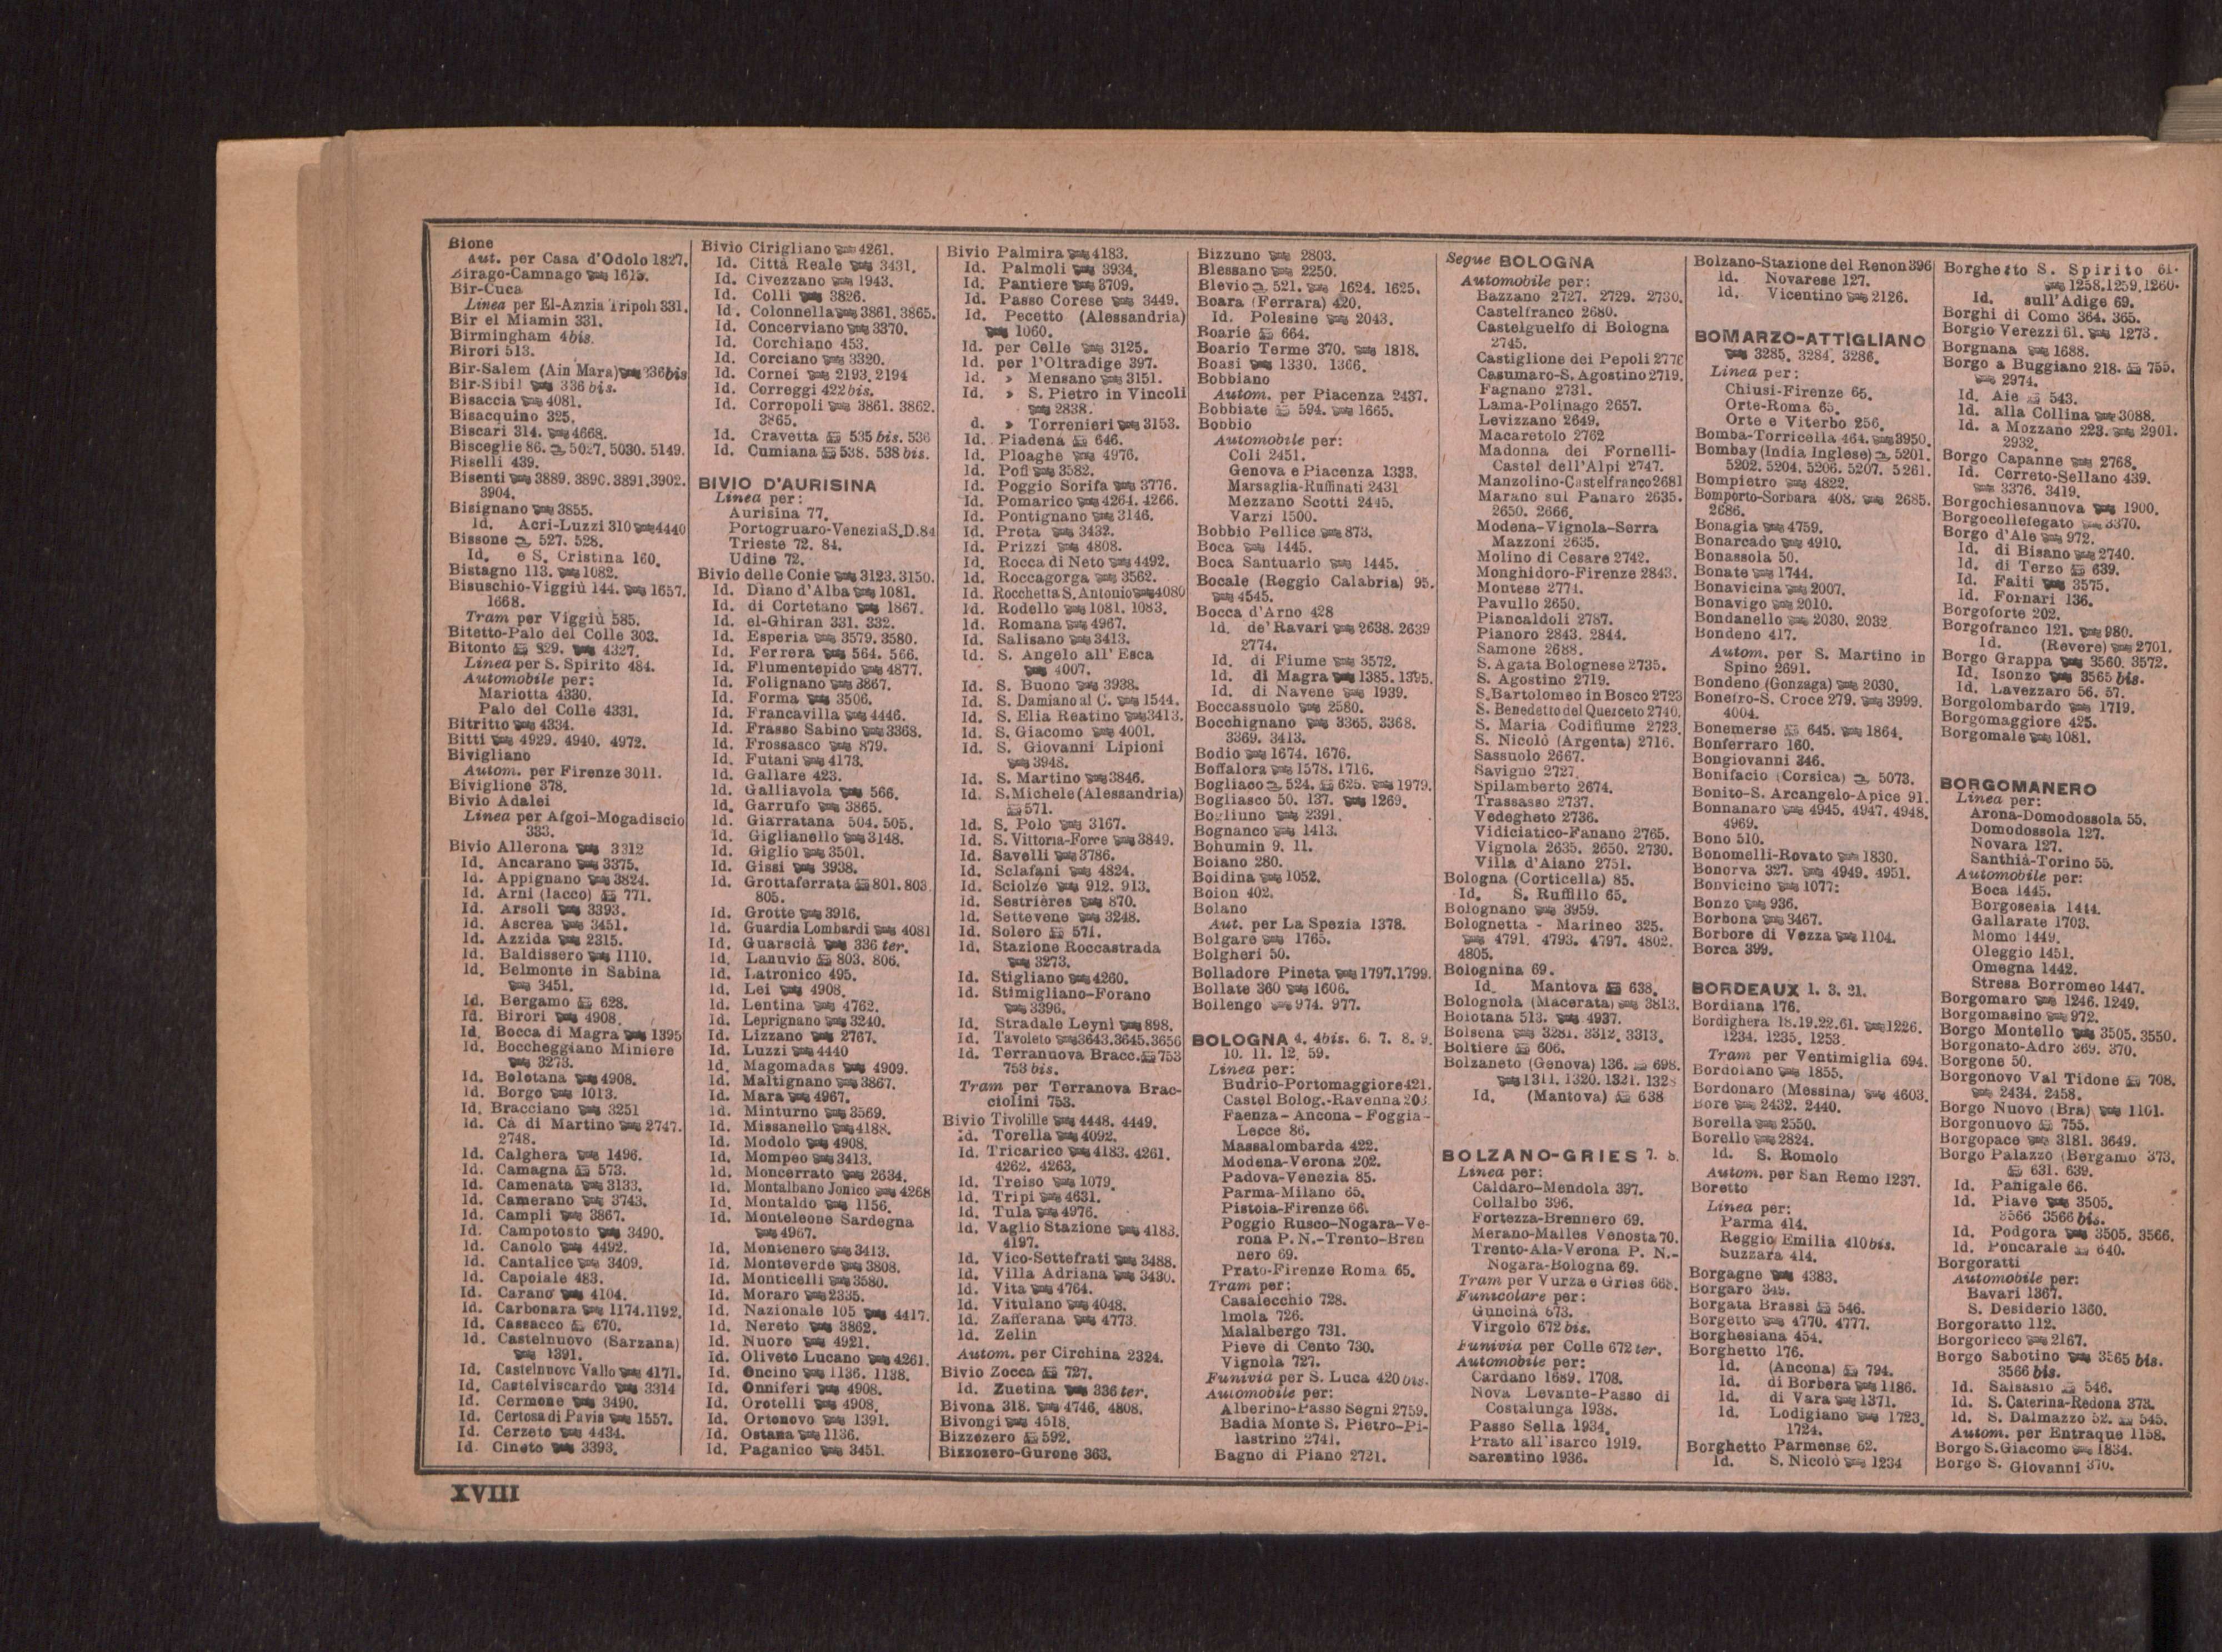 Bione
Aut. per Casa d'Odolo 1827.
Birago-Camnago 1615.
Bir-Cuca
Linea per El-Azizia Tripoli 331.
Bir el Miamin 331.
Birmingham 4bis.
Birori 513.
Bir-Salem (Ain Mara) 336bis
Bir-Sibil 336 bis.
Bisaccia 4081.
Bisacquino 325.
Biscari 314. 4668.
Bisceglie 86. 5027. 5030. 5149.
Biselli 439.
Bisenti 3889. 3890. 3891. 3902.
3904.
Bisignano 3855.
Id. Acri-Luzzi 310 4440
Bissone 527. 528.
Id. e S. Cristina 160.
Bistagno 113. 1082.
Bisuschio-Viggiù 144. 1657.
1668.
Tram per Viggiù 585.
Bitetto-Palo del Colle 303.
Bitonto 829. 4327.
Linea per S. Spirito 484.
Automobile per:
Mariotta 4330.
Palo del Colle 4331.
Bitritto 4334.
Bitti 4929. 4940. 4972.
Bivigliano
Autom. per Firenze 3011.
Biviglione 378.
Bivio Adalei
Linea per Afgoi-Mogadiscio
333.
Bivio Allerona 3312
Id. Ancarano 3375.
Id. Appignano 3824.
Id. Arni (Iacco) 771.
Id. Arsoli 3393.
Id. Ascrea 3451.
Id. Azzida 2315.
Id. Baldissero 1110.
Id. Belmonte in Sabina
3451.
Id. Bergamo 628.
Id. Birori 4908.
Id. Bocca di Magra 1395
Id. Boccheggiano Miniere
3273.
Id. Bolotana 4908.
Id. Borgo 1013.
Id. Bracciano 3251
Id. Cà di Martino 2747.
2748.
Id. Calghera 1496.
Id. Camagna 573.
Id. Camenata 3133.
Id. Camerano 3743.
Id. Campli 3867.
Id. Campotosto 3490.
Id. Canolo 4492.
Id. Cantalice 3409.
Id. Capoiale 483.
Id. Carano 4104.
Id. Carbonara 1174. 1192.
Id. Cassacco 670.
Id. Castelnuovo (Sarzana)
1391.
Id. Castelnuovo Vallo 4171.
Id. Castelviscardo 3314
Id. Cermone 3490.
Id. Certosa di Pavia 1557.
Id. Cerzeto 4434.
Id. Cineto 3393.
Bivio Cirigliano 4261.
Id. Città Reale 3431.
Id. Civezzano 1943.
Id. Colli 3826.
Id. Colonnella 3861. 3865.
Id. Concerviano 3370.
Id. Corchiano 453.
Id. Corciano 3320.
Id. Cornei 2193. 2194
Id. Correggi 422bis.
Id. Corropoli 3861. 3862.
3865.
Id. Cravetta 535 bis. 536
Id. Cumiana 538. 538 bis.
BIVIO D'AURISINA
Linea per:
Aurisina 77.
Portogruaro-Venezia S.D. 84
Trieste 72. 84.
Udine 72.
Bivio delle Conie 3123. 3150.
Id. Diano d'Alba 1081.
Id. di Cortetano 1867.
Id. el-Ghiran 331. 332.
Id. Esperia 3579. 3580.
Id. Ferrera 564. 566.
Id. Flumentepido 4877.
Id. Folignano 3867.
Id. Forma 3506.
Id. Francavilla 4446.
Id. Frasso Sabino 3368.
Id. Frossasco 879.
Id. Futani 4173.
Id. Gallare 423.
Id. Galliavola 566.
Id. Garrufo 3865.
Id. Giarratana 504. 505.
Id. Giglianello 3148.
Id. Giglio 3501.
Id. Gissi 3938.
Id. Grottaferrata 801. 803
805.
Id. Grotte 3916.
Id. Guardia Lombardi 4081
Id. Guarscià 336 ter.
Id. Lanuvio 803. 806.
Id. Latronico 495.
Id. Lei 4908.
Id. Lentina 4762.
Id. Leprignano 3240.
Id. Lizzano 2767.
Id. Luzzi 4440
Id. Magomadas 4909.
Id. Maltignano 3867.
Id. Mara 4967.
Id. Minturno 3569.
Id. Missanello 4188.
Id. Modolo 4908.
Id. Mompeo 3413.
Id. Moncerrato 2634.
Id. Montalbano Jonico 4268
Id. Montaldo 1156.
Id. Monteleone Sardegna
4967.
Id. Montenero 3413.
Id. Monteverde 3808.
Id. Monticelli 3580.
Id. Moraro 2335.
Id. Nazionale 105 4417.
Id. Nereto 3862.
Id. Nuoro 4921.
Id. Oliveto Lucano 4261.
Id. Oncino 1136. 1138.
Id. Onniferi 4908.
Id. Orotelli 4908.
Id. Ortonovo 1391.
Id. Ostana 1136.
Id. Paganico 3451.
Bivio Palmira 4183.
Id. Palmoli 3934.
Id. Pantiere 3709.
Id. Passo Corese 3449.
Id. Pecetto (Alessandria)
1060.
Id. per Celle 3125.
Id. per l'Oltradige 397.
Id. » Mensano 3151.
Id. » S. Pietro in Vincoli
2838.
d. » Torrenieri 3153.
Id. Piadena 646.
Id. Ploaghe 4976.
Id. Pofi 3582.
Id. Poggio Sorifa 3776.
Id. Pomarico 4264. 4266.
Id. Pontignano 3146.
Id. Preta 3432.
Id. Prizzi 4808.
Id. Rocca di Neto 4492.
Id. Roccagorga 3562.
Id. Rocchetta S. Antonio 4080
Id. Rodello 1081. 1083.
Id. Romana 4967.
Id. Salisano 3413.
Id. S. Angelo all' Esca
4007.
Id. S. Buono 3938.
Id. S. Damiano al C. 1544.
Id. S. Elia Reatino 3413.
Id. S. Giacomo 4001.
Id. S. Giovanni Lipioni
3948.
Id. S. Martino 3846.
Id. S. Michele (Alessandria)
571.
Id. S. Polo 3167.
Id. S. Vittoria-Force 3849.
Id. Savelli 3786.
Id. Sclafani 4824.
Id. Sciolze 912. 913.
Id. Sestrières 870.
Id. Settevene 3248.
Id. Solero 571.
Id. Stazione Roccastrada
3273.
Id. Stigliano 4260.
Id. Stimigliano-Forano
3396.
Id. Stradale Leynì 898.
Id. Tavoleto 3643. 3645. 3656
Id. Terranuova Bracc. 753
753 bis.
Tram per Terranova Brac-
ciolini 753.
Bivio Tivolille 4448. 4449.
Id. Torella 4092.
Id. Tricarico 4183. 4261.
4262. 4263.
Id. Treiso 1079.
Id. Tripi 4631.
Id. Tula 4976.
Id. Vaglio Stazione 4183.
4197.
Id. Vico-Settefrati 3488.
Id. Villa Adriana 3430.
Id. Vita 4764.
Id. Vitulano 4048.
Id. Zafferana 4773.
Id. Zelin
Autom. per Circhina 2324.
Bivio Zocca 727.
Id. Zuetina 336 ter.
Bivona 318. 4746. 4808.
Bivongi 4518.
Bizzezero 592.
Bizzozero-Gurone 363.
Bizzuno 2803.
Blessano 2250.
Blevio 521. 1624. 1625.
Boara (Ferrara) 420.
Id. Polesine 2043.
Boarie 664.
Boario Terme 370. 1818.
Boasi 1330. 1366.
Bobbiano
Autom. per Piacenza 2437.
Bobbiate 594. 1665.
Bobbio
Automobile per:
Coli 2451.
Genova e Piacenza 1333.
Marsaglia-Ruffinati 2431
Mezzano Scotti 2445.
Varzi 1500.
Bobbio Pellice 873.
Boca 1445.
Boca Santuario 1445.
Bocale (Reggio Calabria) 95.
4545.
Bocca d'Arno 428
Id. de' Ravari 2638. 2639
2774.
Id. di Fiume 3572.
Id. di Magra 1385. 1395.
Id. di Navene 1939.
Boccassuolo 2580.
Bocchignano 3365. 3368.
3369. 3413.
Bodio 1674. 1676.
Boffalora 1578. 1716.
Bogliaco 524. 625. 1979.
Bogliasco 50. 137. 1269.
Bogliuno 2391.
Bognanco 1413.
Bohumin 9. 11.
Boiano 280.
Boidina 1052.
Boion 402.
Bolano
Aut. per La Spezia 1378.
Bolgare 1765.
Bolgheri 50.
Bolladore Pineta 1797. 1799.
Bollate 360 1606.
Bollengo 974. 977.
BOLOGNA 4. 4bis. 6. 7. 8. 9.
10. 11. 12. 59.
Linea per:
Budrio-Portomaggiore 421.
Castel Bolog.-Ravenna 203
Faenza - Ancona - Foggia -
Lecce 86.
Massalombarda 422.
Modena-Verona 202.
Padova-Venezia 85.
Parma-Milano 65.
Pistoia-Firenze 66.
Poggio Rusco-Nogara-Ve-
rona P. N.-Trento-Bren
nero 69.
Prato-Firenze Roma 65.
Tram per:
Casalecchio 728.
Imola 726.
Malalbergo 731.
Pieve di Cento 730.
Vignola 727.
Funivia per S. Luca 420 bis.
Automobile per:
Alberino-Passo Segni 2759.
Badia Monte S. Pietro-Pi-
lastrino 2741.
Bagno di Piano 2721.
Segue BOLOGNA
Automobile per:
Bazzano 2727. 2729. 2730.
Castelfranco 2680.
Castelguelfo di Bologna
2745.
Castiglione dei Pepoli 2770
Casumaro-S. Agostino 2719.
Fagnano 2731.
Lama-Polinago 2657.
Levizzano 2649.
Macaretolo 2762
Madonna dei Fornelli-
Castel dell'Alpi 2747.
Manzolino-Castelfranco 2681
Marano sul Panaro 2635.
2650. 2666.
Modena-Vignola-Serra
Mazzoni 2635.
Molino di Cesare 2742.
Monghidoro-Firenze 2843.
Montese 2771.
Pavullo 2650.
Piancaldoli 2787.
Pianoro 2843. 2844.
Samone 2688.
S. Agata Bolognese 2735.
S. Agostino 2719.
S. Bartolomeo in Bosco 2723
S. Benedetto del Querceto 2740.
S. Maria Codifiume 2723.
S. Nicolò (Argenta) 2716.
Sassuolo 2667.
Savigno 2727.
Spilamberto 2674.
Trassasso 2737.
Vedegheto 2736.
Vidiciatico-Fanano 2765.
Vignola 2635. 2650. 2730.
Villa d'Aiano 2751.
Bologna (Corticella) 85.
Id. S. Ruffillo 65.
Bolognano 3959.
Bolognetta - Marineo 325.
4791. 4793. 4797. 4802.
4805.
Bolognina 69.
Id. Mantova 638.
Bolognola (Macerata) 3813.
Bolotana 513. 4937.
Bolsena 3281. 3312. 3313.
Boltiere 606.
Bolzaneto (Genova) 136. 698.
1311. 1320. 1321. 1328
Id. (Mantova) 638
BOLZANO-GRIES 7. 8.
Linea per:
Caldaro-Mendola 397.
Collalbo 396.
Fortezza-Brennero 69.
Merano-Malles Venosta 70.
Trento-Ala-Verona P. N.-
Nogara-Bologna 69.
Tram per Vurza e Gries 668.
Funicolare per:
Guncina 673.
Virgolo 672 bis.
Funivia per Colle 672 ter.
Automobile per:
Cardano 1689. 1708.
Nova Levante-Passo di
Costalunga 1938.
Passo Sella 1934.
Prato all'isarco 1919.
Sarentino 1936.
Bolzano-Stazione del Renon 396
Id. Novarese 127.
Id. Vicentino 2126.
BOMARZO-ATTIGLIANO
3285. 3284. 3286.
Linea per:
Chiusi-Firenze 65.
Orte-Roma 65.
Orte e Viterbo 256.
Bomba-Torricella 464. 3950.
Bombay (India Inglese) 5201.
5202. 5204. 5206. 5207. 5261.
Bompietro 4822.
Bomporto-Sorbara 408. 2685.
2686.
Bonagia 4759.
Bonarcado 4910.
Bonassola 50.
Bonate 1744.
Bonavicina 2007.
Bonavigo 2010.
Bondanello 2030. 2032
Bondeno 417.
Autom. per S. Martino in
Spino 2691.
Bondeno (Gonzaga) 2030.
Bonefro-S. Croce 279. 3999.
4004.
Bonemerse 645. 1864.
Bonferraro 160.
Bongiovanni 346.
Bonifacio (Corsica) 5073.
Bonito-S. Arcangelo-Apice 91.
Bonnanaro 4945. 4947. 4948.
4969.
Bono 510.
Bonomelli-Rovato 1830.
Bonorva 327. 4949. 4951.
Bonvicino 1077:
Bonzo 936.
Borbona 3467.
Borbore di Vezza 1104.
Borca 399.
BORDEAUX 1. 3. 21.
Bordiana 176.
Bordighera 18.19.22.61. 1226.
1234. 1235. 1253.
Tram per Ventimiglia 694.
Bordolano 1855.
Bordonaro (Messina) 4603.
Bore 2432. 2440.
Borella 2550.
Borello 2824.
Id. S. Romolo
Autom. per San Remo 1237.
Boretto
Linea per:
Parma 414.
Reggio Emilia 410bis.
Suzzara 414.
Borgagne 4383.
Borgaro 349.
Borgata Brassi 546.
Borgetto 4770. 4777.
Borghesiana 454.
Borghetto 176.
Id. (Ancona) 794.
Id. di Borbera 1186.
Id. di Vara 1371.
Id. Lodigiano 1723.
1724.
Borghetto Parmense 62.
Id. S. Nicolò 1234
Borghetto S. Spirito 61-
1258.1259.1260-
Id. sull'Adige 69.
Borghi di Como 364. 365.
Borgio Verezzi 61. 1273.
Borgnana 1688.
Borgo a Buggiano 218. 755.
2974.
Id. Aie 543.
Id. alla Collina 3088.
Id. a Mozzano 223. 2901.
2932.
Borgo Capanne 2768.
Id. Cerreto-Sellano 439.
3376. 3419.
Borgochiesanuova 1900.
Borgocollefegato 3370.
Borgo d'Ale 972.
Id. di Bisano 2740.
Id. di Terzo 639.
Id. Faiti 3575.
Id. Fornari 136.
Borgoforte 202.
Borgofranco 121. 980.
Id. (Revere) 2701.
Borgo Grappa 3560. 3572.
Id. Isonzo 3565 bis.
Id. Lavezzaro 56. 57.
Borgolombardo 1719.
Borgomaggiore 425.
Borgomale 1081.
BORGOMANERO
Linea per:
Arona-Domodossola 55.
Domodossola 127.
Novara 127.
Santhià-Torino 55.
Automobile per:
Boca 1445.
Borgosesia 1414.
Gallarate 1703.
Momo 1449.
Oleggio 1451.
Omegna 1442.
Stresa Borromeo 1447.
Borgomaro 1246. 1249.
Borgomasino 972.
Borgo Montello 3505. 3550.
Borgonato-Adro 369. 370.
Borgone 50.
Borgonovo Val Tidone 708.
2434. 2458.
Borgo Nuovo (Bra) 1101.
Borgonuovo 755.
Borgopace 3181. 3649.
Borgo Palazzo (Bergamo 373.
631. 639.
Id. Panigale 66.
Id. Piave 3505.
3566 3566 bis.
Id. Podgora 3505. 3566.
Id. Poncarale 640.
Borgoratti
Automobile per:
Bavari 1367.
S. Desiderio 1360.
Borgoratto 112.
Borgoricco 2167.
Borgo Sabotino 3565 bis.
3566 bis.
Id. Salsasio 546.
Id. S. Caterina-Redona 373.
Id. S. Dalmazzo 52. 545.
Autom. per Entraque 1158.
Borgo S. Giacomo 1834.
Borgo S. Giovanni 370.
XVIII